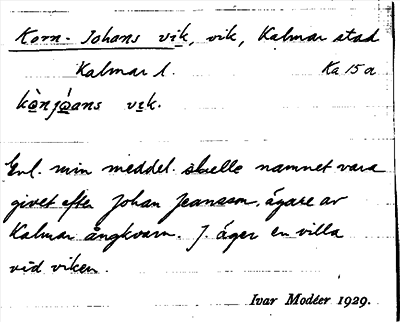 Korn-Johans vik, vik, Kalmar stad
Kalmar l. Ka 15 a
kò̱njó̱ans vi̱k.
Enl. min meddel. skulle namnet vara
givet efter Johan Jeansson, ägare av
Kalmar ångkvarn. J. äger en villa
vid viken.
Ivar Modéer 1929.